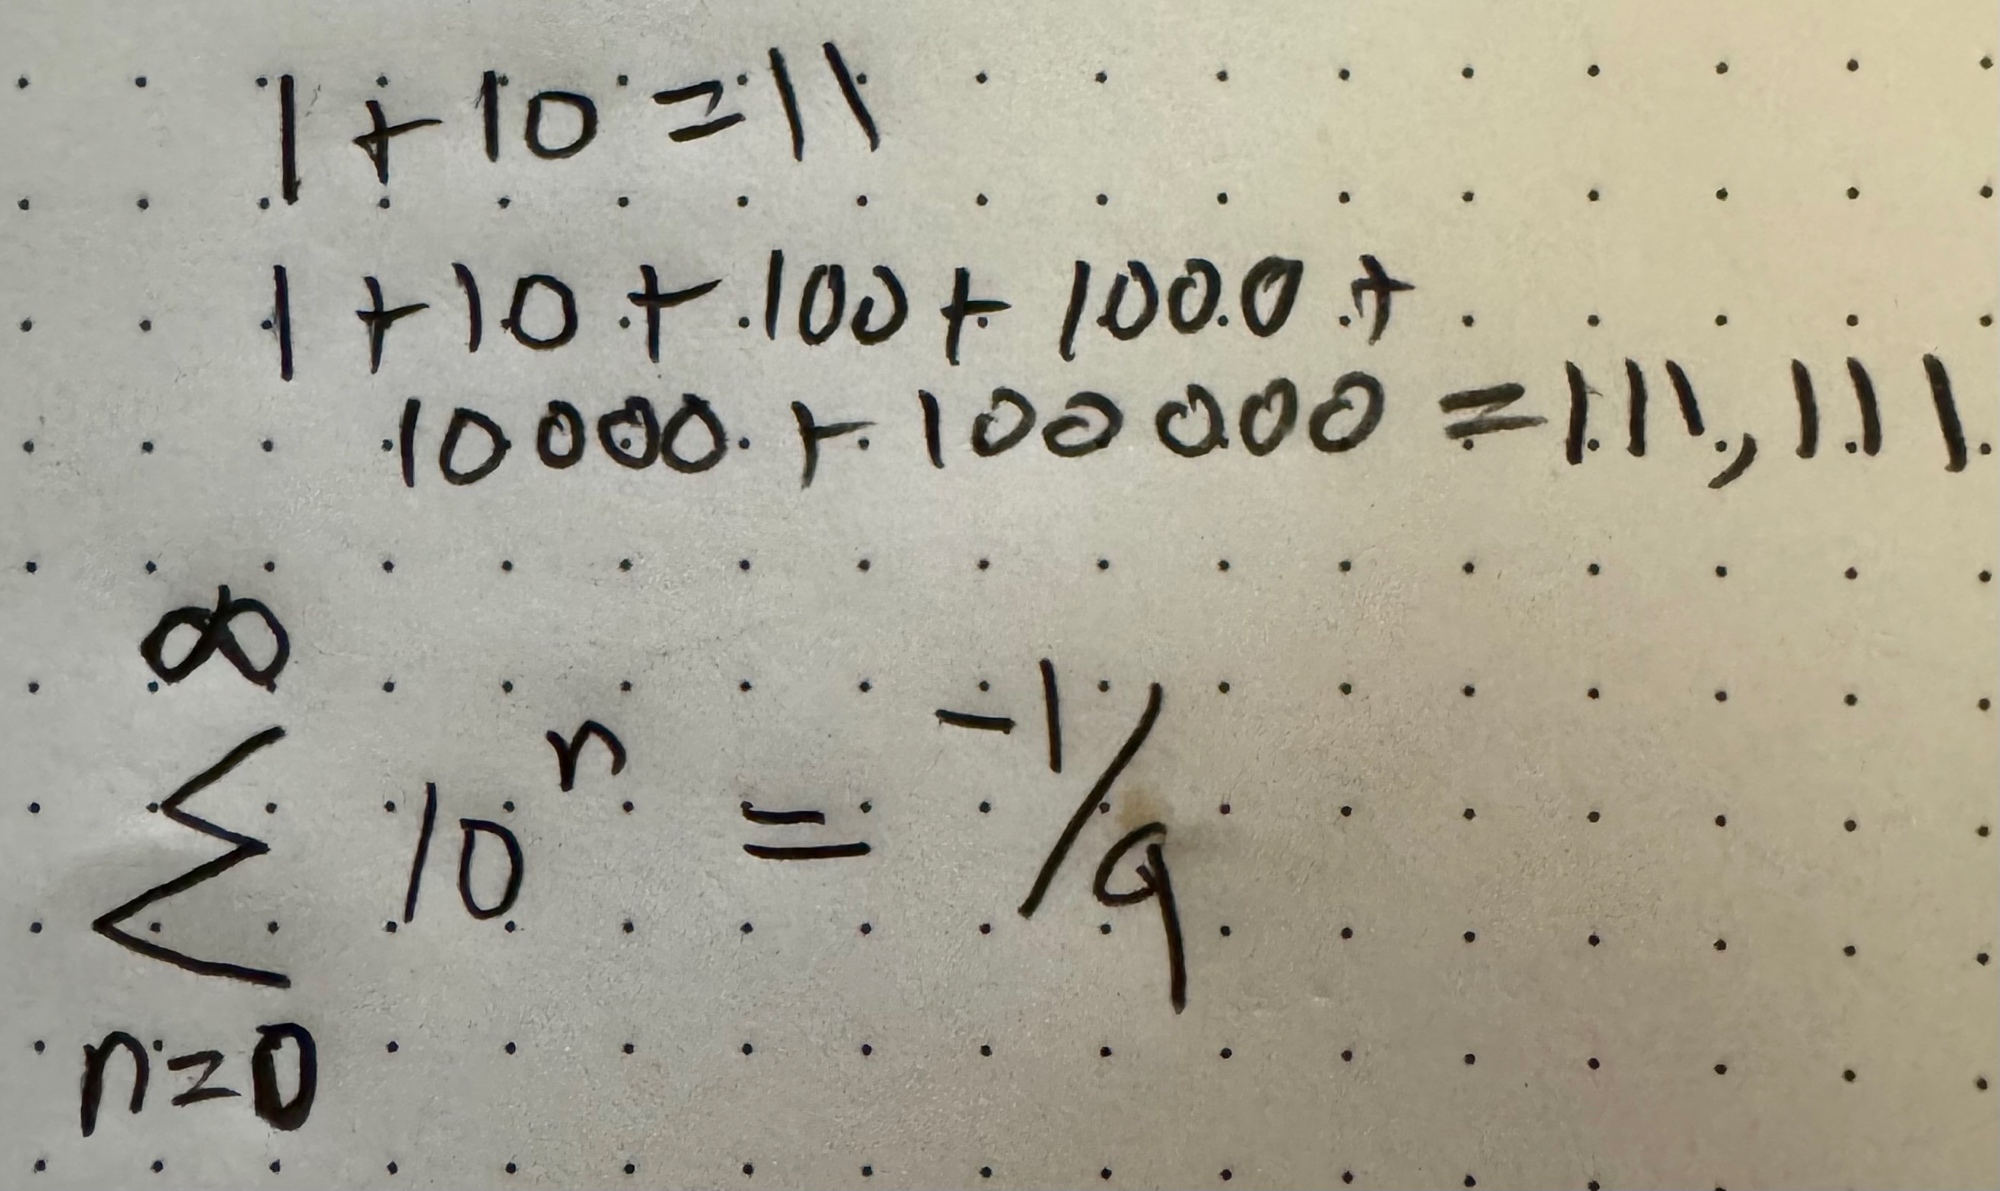 1 + 10 = 11
1 + 10 + 100 + 1000 +
10000 + 100000 = 111,111
∞
∑ 10ⁿ = -1/9
n=0